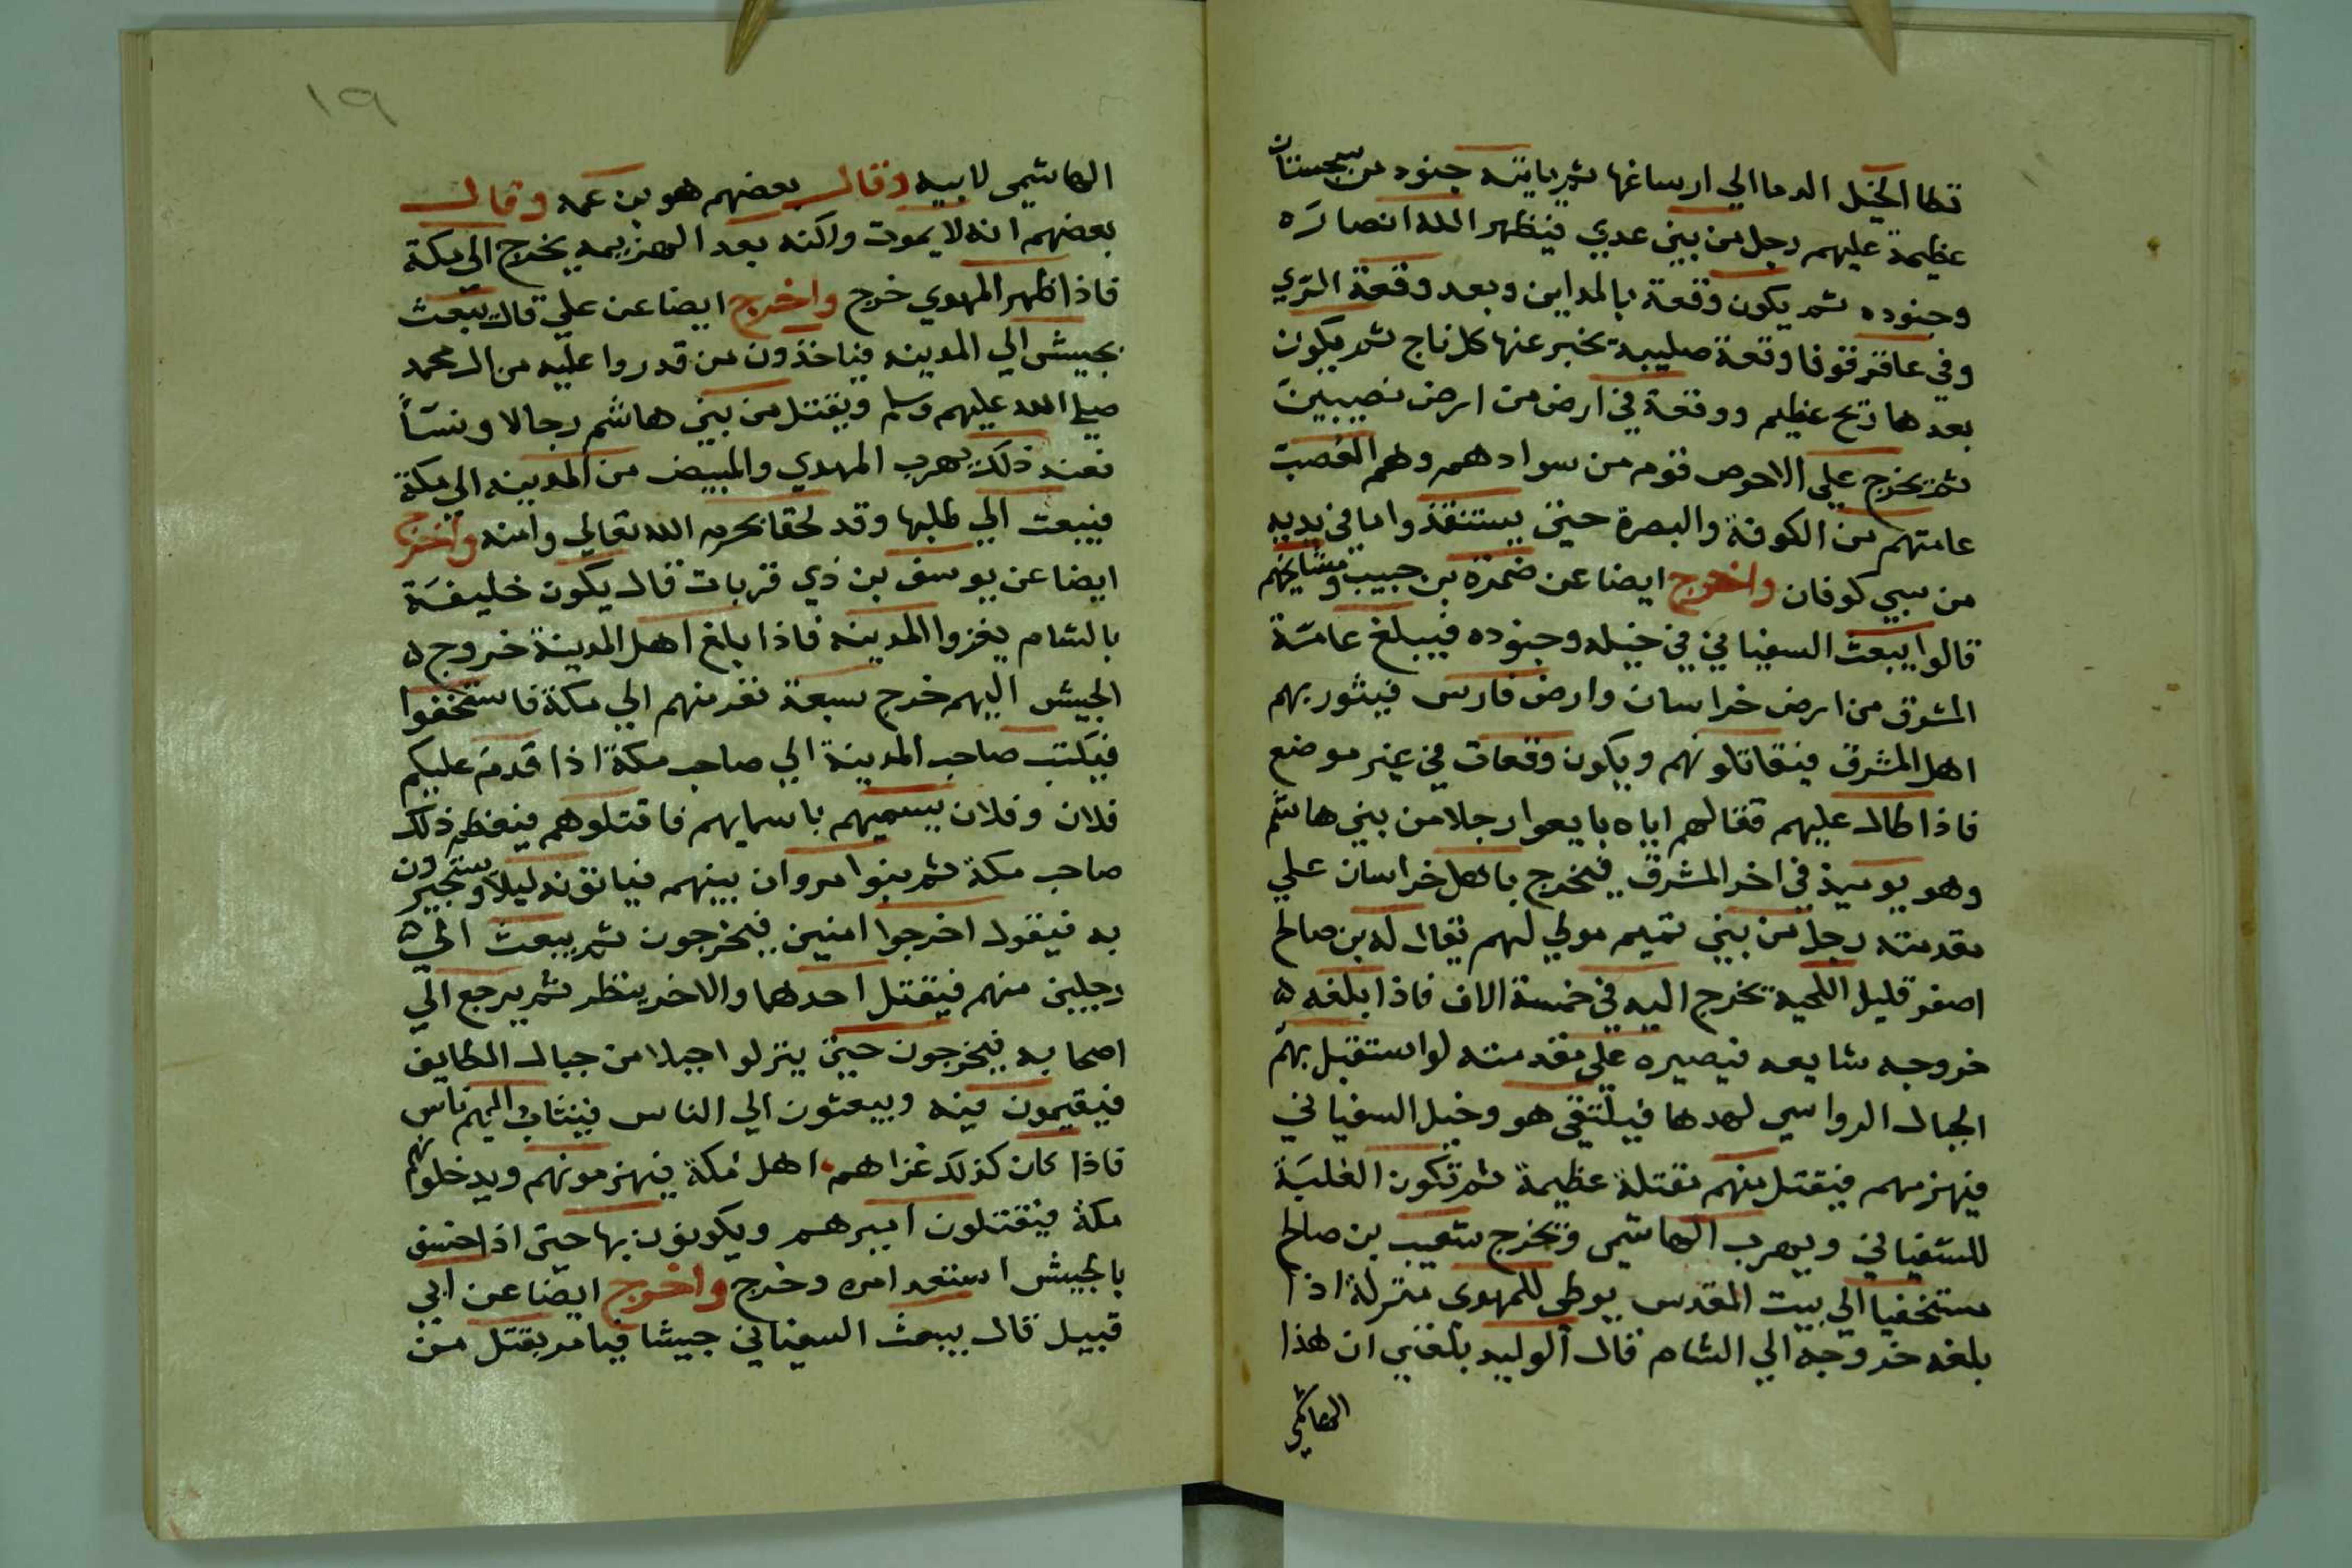 تطا الخيل الدما الي ارساغها ثم ياتيه جنود من سجستان
عظيمة عليهم رجل من بني عدي فيظهر الله انصاره
وجنوده ثم يكون وقعة بالمداين وبعد وقعة الري
وفي عاقرقوفا وقعة صليبة يخبر عنها كل ناج ثم يكون
بعدها ذبح عظيم ووقعة في ارض من ارض نصيبين
ثم يخرج علي الاحوص قوم من سوادهم وهم العصب
عامتهم من الكوفة والبصرة حتي يستنقذوا ما في يديه
من سبي كوفان واخرج ايضا عن ضمرة بن حبيب ومشايخهم
قالوا يبعث السفياني في خيله وجنوده فيبلغ عامة
المشرق من ارض خراسان وارض فارس فيثور بهم
اهل المشرق فيقاتلونهم ويكون وقعات في غير موضع
فاذا طال عليهم قتالهم اياه بايعوا رجلا من بني هاشم
وهو يوميذ في اخر المشرق فيخرج باهل خراسان علي
مقدمته رجل من بني تميم مولي لهم يقال له بن صالح
اصفر قليل اللحية يخرج اليه في خمسة الاف فاذا بلغه ه
خروجه شايعه فيصيره علي مقدمته لو استقبل بهم
الجبال الرواسي لهدها فيلتقي هو وخيل السفياني
فيهزمهم فيقتل منهم مقتلة عظيمة ثم تكون الغلبة
للسفياني ويهرب الهاشمي ويخرج شعيب بن صالح
مستخفيا الي بيت المقدس يوطي للمهدي منزلة اذا
بلغه خروجه الي الشام قال الوليد بلغني ان هذا
الهاشمي
١٩
الهاشمي لابيه وقال بعضهم هو بن عمه وقال
بعضهم انه لا يموت ولكنه بعد الهزيمه يخرج الي مكة
فاذا ظهر المهدي خرج واخرج ايضا عن علي قال يبعث
بجيش الي المدينه فياخذون من قدروا عليه من ال محمد
صلي الله عليهم وسلم ويقتل من بني هاشم رجالا ونسآ
فعند ذلك يهرب المهدي والمبيض من المدينه الي مكة
فيبعث الي طلبها وقد لحقا بحرم الله تعالي وامنه واخرج
ايضا عن يوسف بن ذي قربات قال يكون خليفة
بالشام يغزوا المدينه فاذا بلغ اهل المدينة خروج ه
الجيش اليهم خرج سبعة نفر منهم الي مكة فاستخفوا
فيكتب صاحب المدينة الي صاحب مكة اذا قدم عليكم
فلان وفلان يسميهم باسمايهم فاقتلوهم فيعظم ذلك
صاحب مكة ثم بنوا مروان بينهم فياتونه ليلا ويستجيرون
به فيقول اخرجوا امنين فيخرجون ثم يبعث الي ه
رجلين منهم فيقتل احدهما والاخر ينظر ثم يرجع الي
اصحابه فيخرجون حتي ينزلوا جبلا من جبال الطايف
فيقيمون فيه ويبعثون الي الناس فينثاب اليهم ناس
فاذا كان كذلك غزاهم اهل مكة فيهزمونهم ويدخلونهم
مكة فيقتلون اميرهم ويكونون بها حتي اذا خسف
بالجيش استعد امره وخرج واخرج ايضا عن ابي
قبيل قال يبعث السفياني جيشا فيامر بقتل من